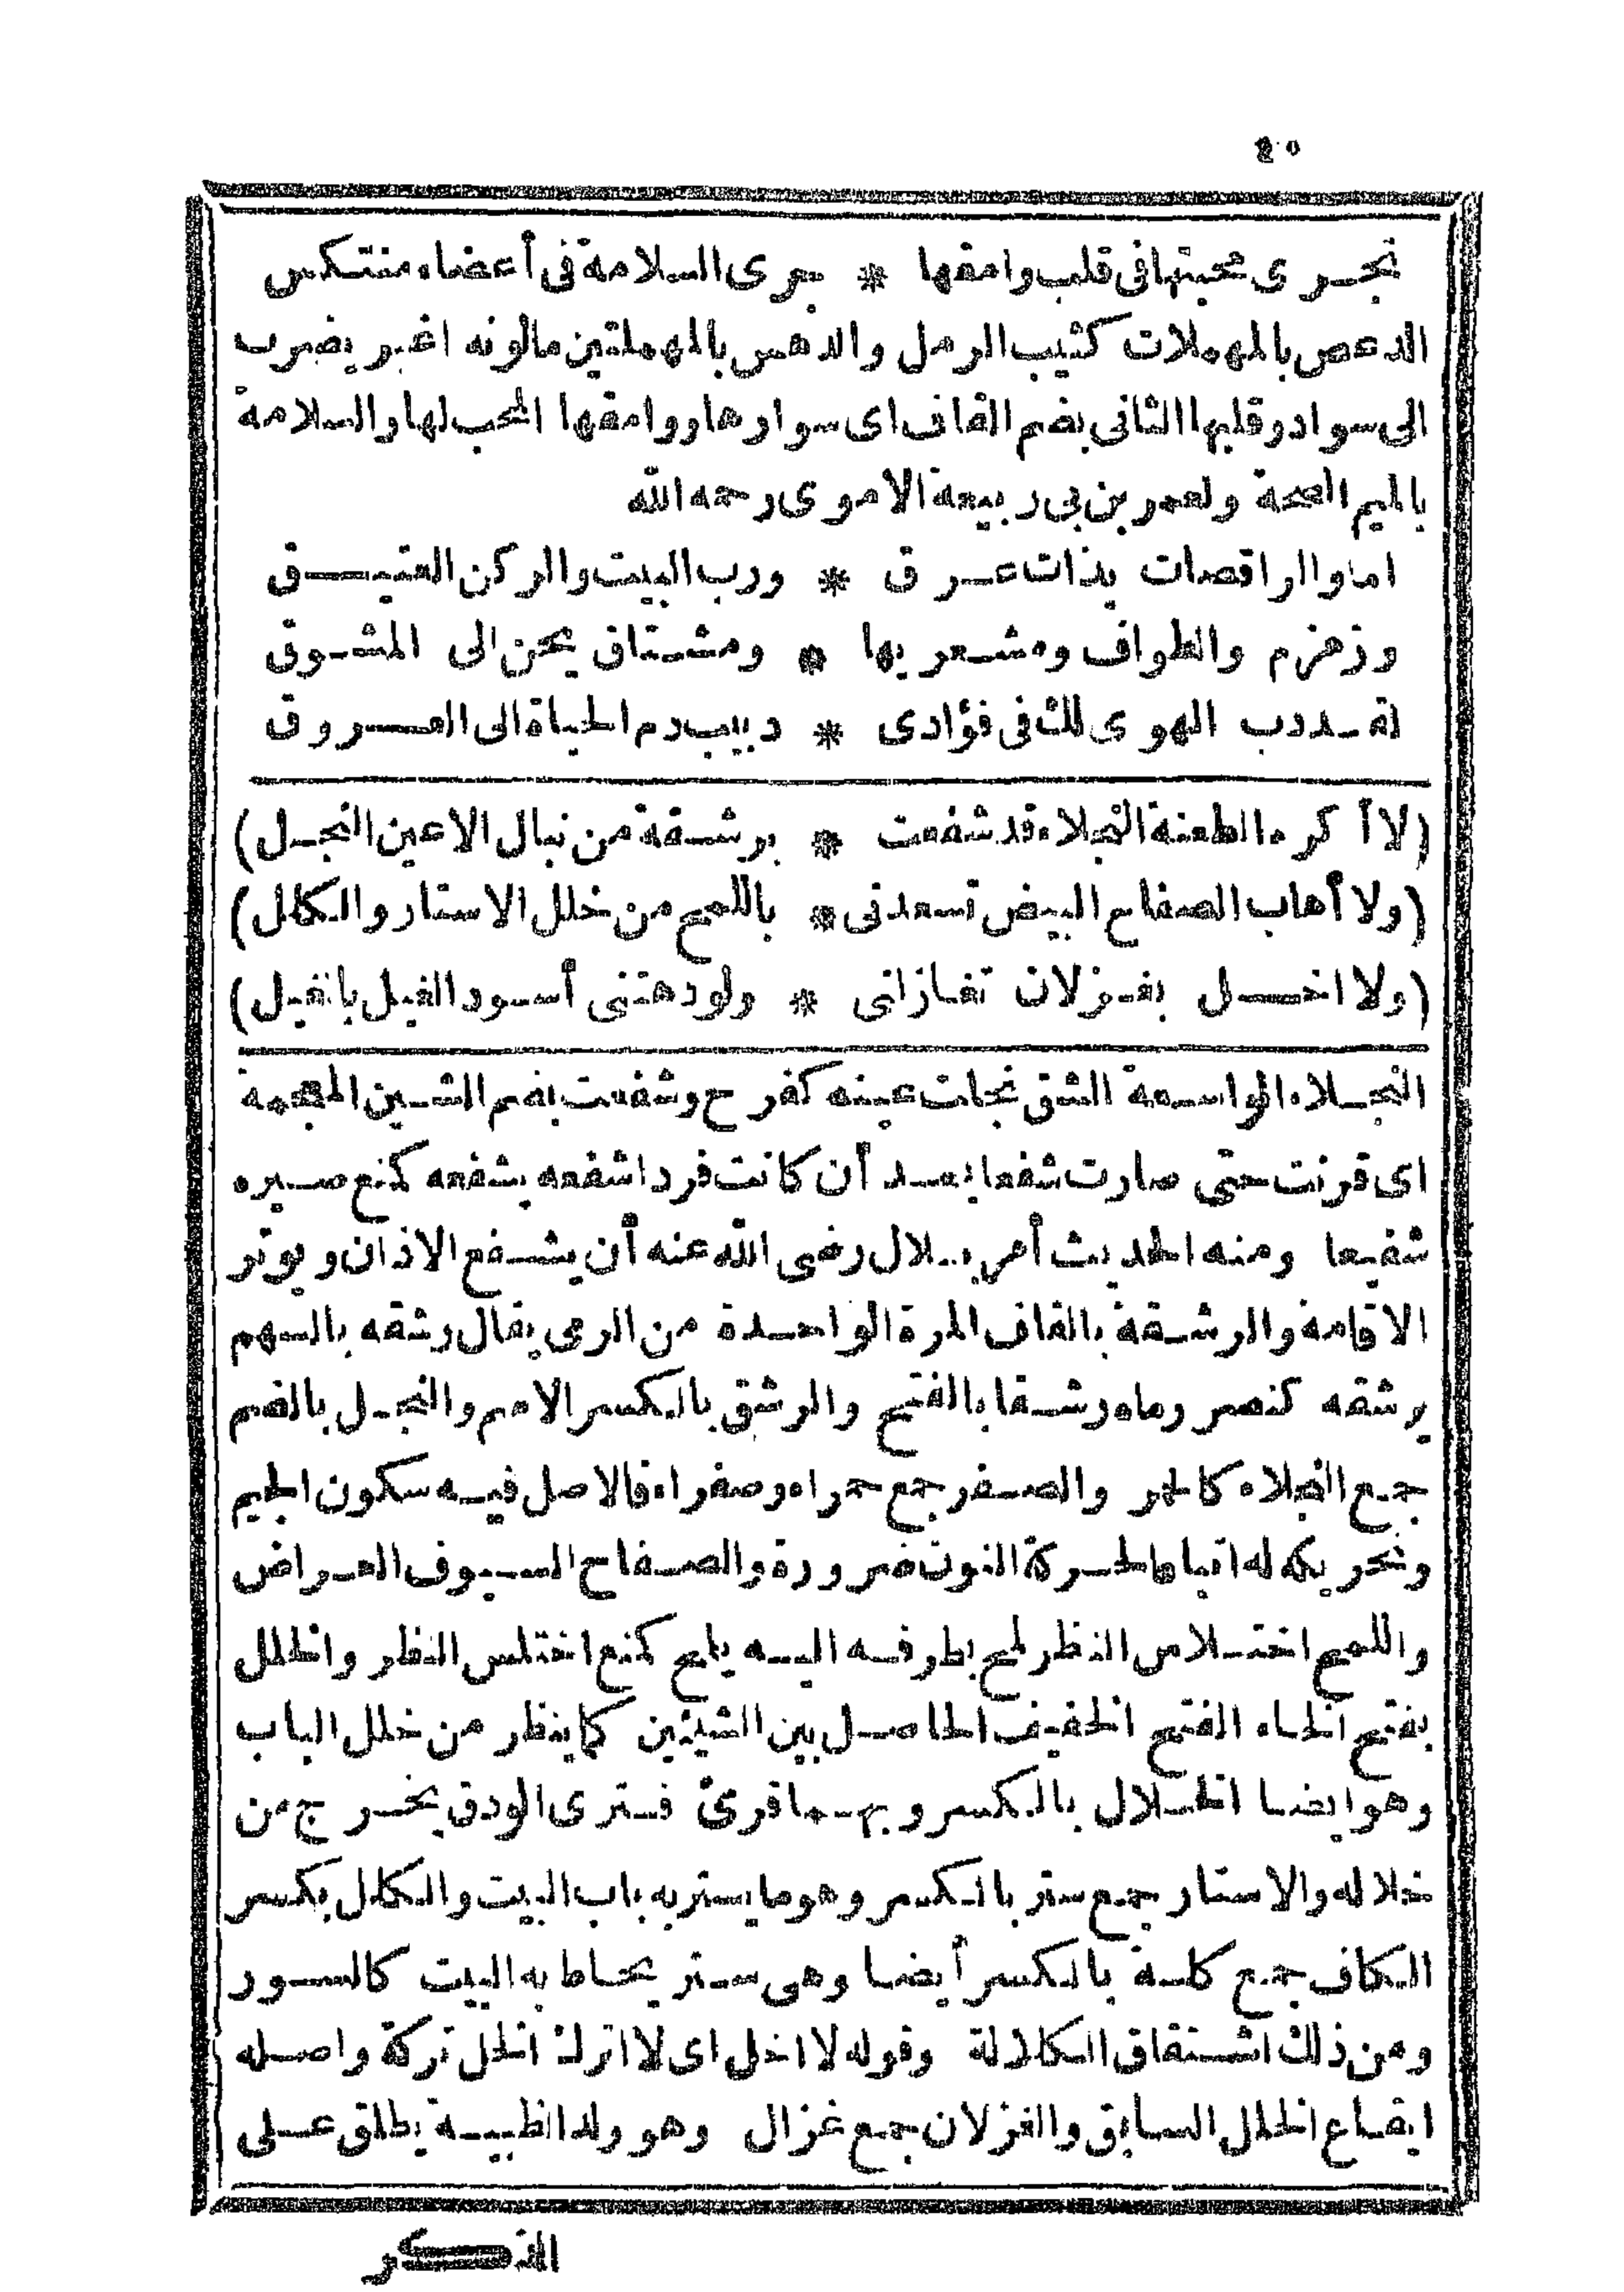 ٤٠
تجرى محبتها فى قلب وامقها * جرى السلامة فى أعضاء منتكس
الدعص بالمهملات كثيب الرمل والدهس بالمهملتين مالونه اغبر يضرب
الى سواد وقلبها الثانى بضم القاف اى سوارها ووامقها المحب لها والسلامة
بالميم الصحة ولعمر بن بى ربيعة الاموى رحمه الله
اما والراقصات بذات عرق * ورب البيت والركن العتيق
وزمزم والطواف ومشعريها * ومشتاق يحن الى المشوق
لقد دب الهوى لك فى فؤادى * دبيب دم الحياة الى العروق
(لا أكره الطعنة النجلاء قد شفعت * برشقة من نبال الاعين النجل)
(ولا أهاب الصفاح البيض تسعدنى * باللمح من خلل الاستار والكلل)
(ولا اخل بغزلان تغازلنى * ولو دهتنى أسود الغيل بالغيل)
النجلاء الواسعة الشق نجلت عينه كفرح وشفعت بضم الشين المعجمة
اى قرنت حتى صارت شفعا بعد أن كانت فردا شفعه يشفعه كمنع صيره
شفيعا ومنه الحديث أمر بلال رضى الله عنه أن يشفع الاذان ويوتر
الاقامة والرشقة بالقاف المرة الواحدة من الرمى يقال رشقه بالسهم
يرشقه كنصر رماه رشقا بالفتح والرشق بالكسر الاسم والنجل بالضم
جمع النجلاء كالحمر والصفر جمع حمراء وصفراء فالاصل فيه سكون الجيم
وتحريكه له اتباعا لحركة النون ضرورة والصفاح السيوف العراض
واللمح اختلاس النظر لمح بطرفه اليه يلمح كمنع اختلس النظر والخلل
بفتح الخاء الفتح الخفيف الحاصل بين الشيئين كما ينظر من خلل الباب
وهو ايضا الخلال بالكسر وبهما قرئ فترى الودق يخرج من
خلاله والاستار جمع ستر بالكسر وهو ما يستر به باب البيت والكلل بكسر
الكاف جمع كلة بالكسر أيضا وهى ستر يحاط به البيت كالسور
ومن ذلك اشتقاق الكلالة وقوله لا اخل اى لا اترك الخل تركة واصله
ايقاع الخلل السابق والغزلان جمع غزال وهو ولد الظبية يطلق على
الذكر